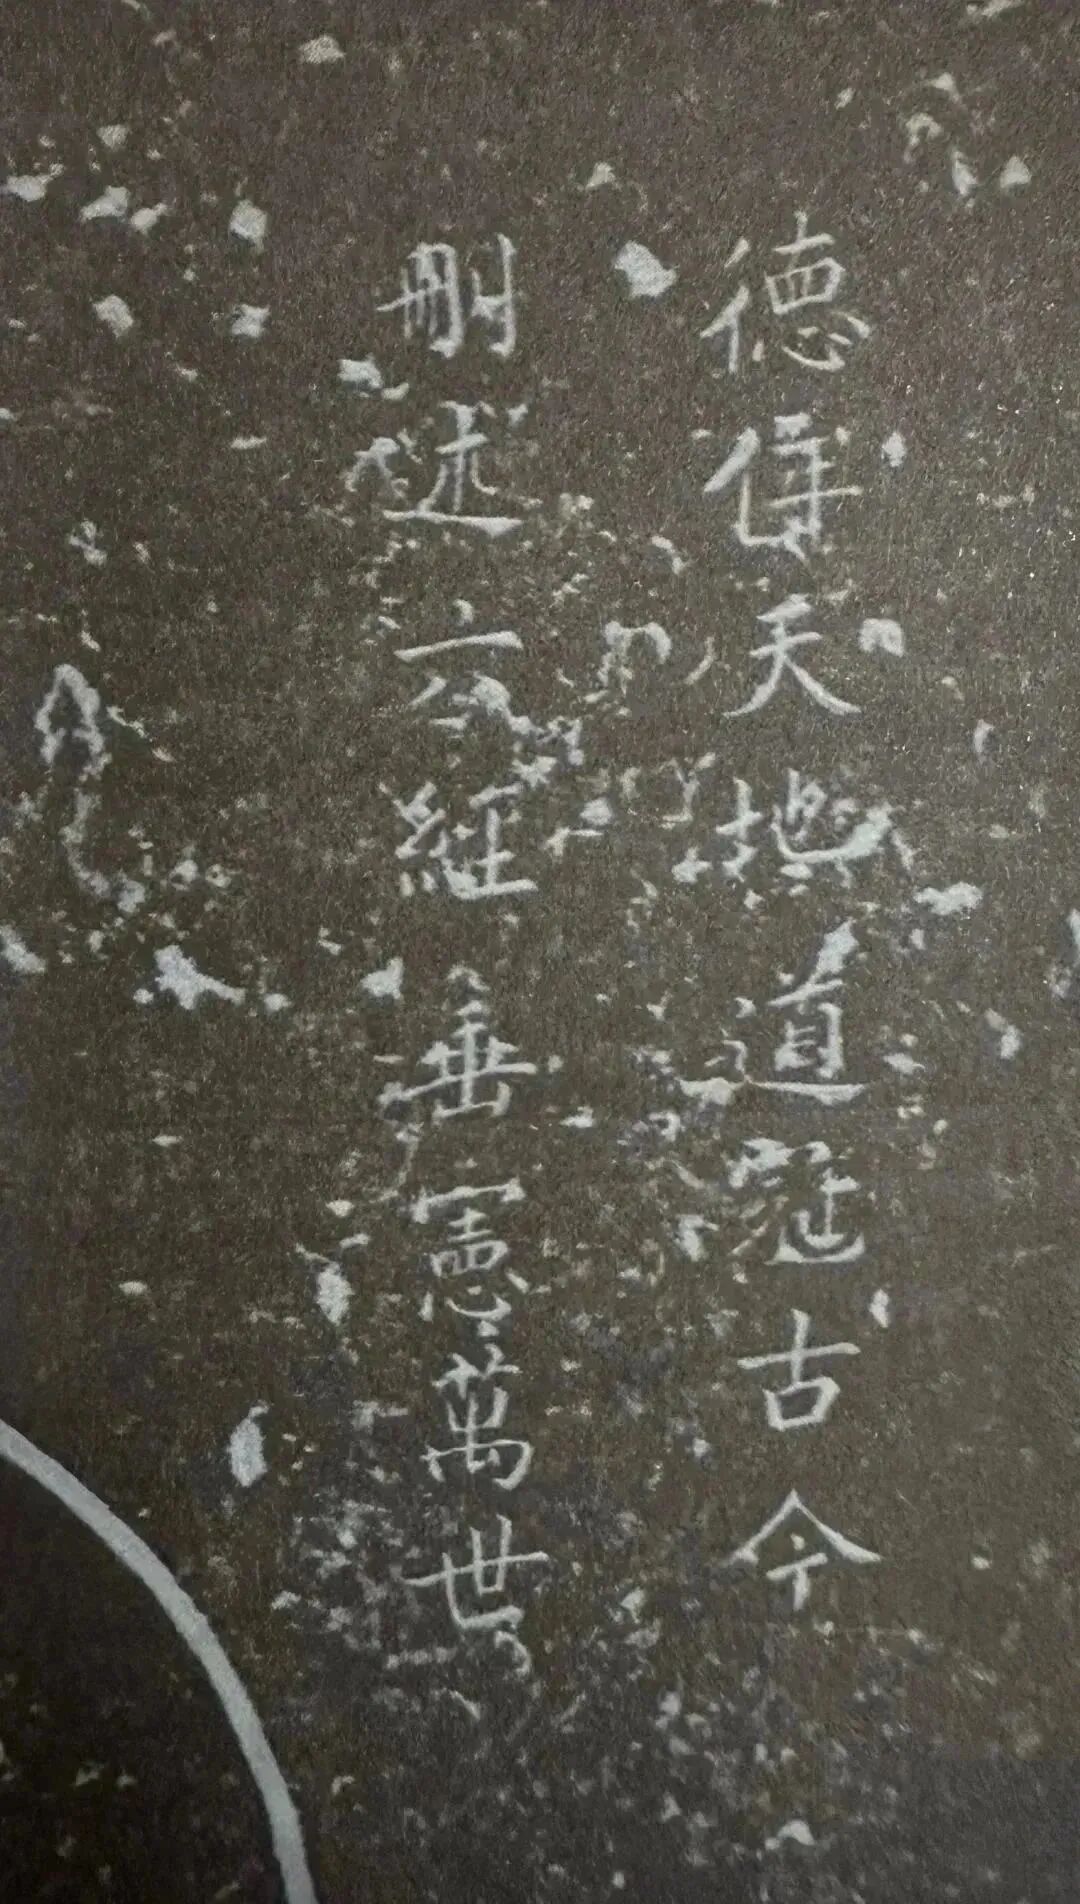 德侔天地道冠古今
刪述六經垂憲萬世